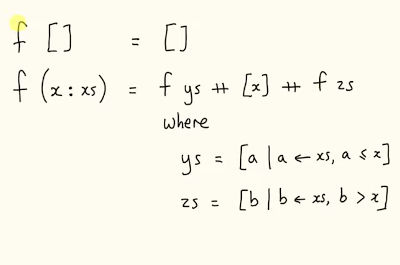 f [] = []
f (x : xs) = f ys ++ [x] ++ f zs
where
ys = [a | a ← xs, a ≤ x]
zs = [b | b ← xs, b > x]